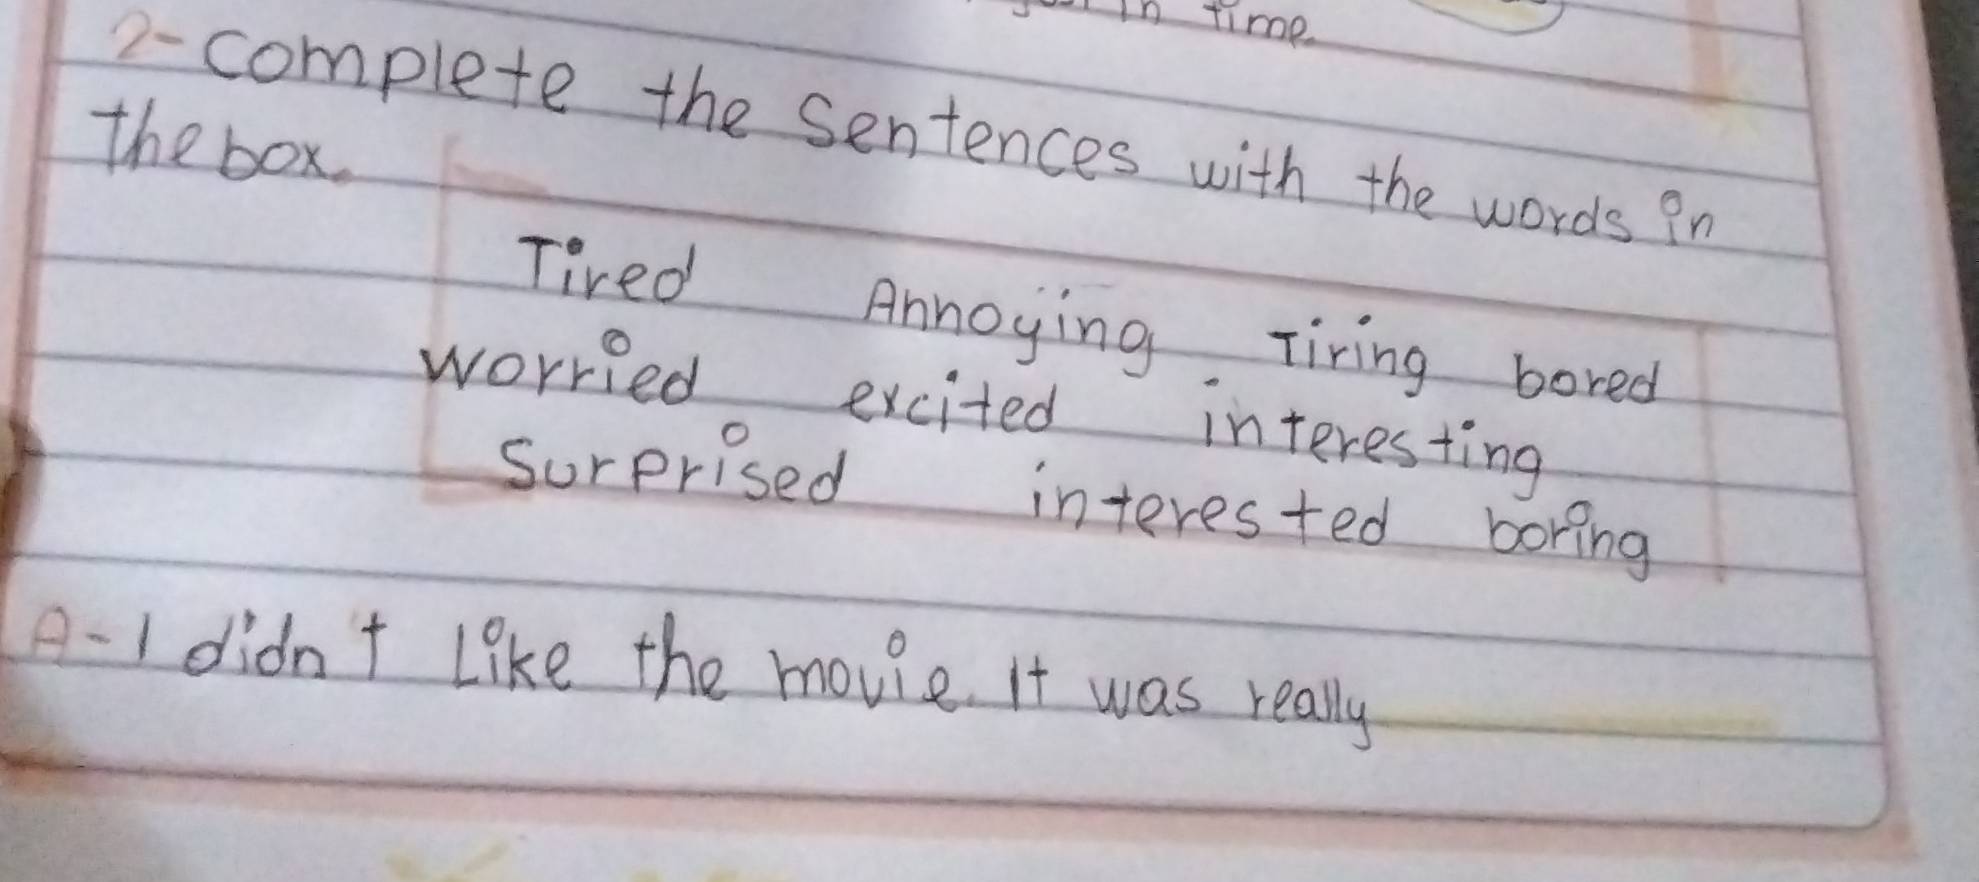 in time
2- complete the sentences with the words in
the box.
Tired Annoying Tiring bored
worried excited interesting
Surprised interested boring
A- I didn't Like the movie. It was really